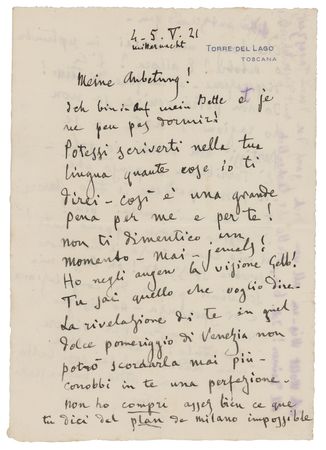 4-5. V. 21
mitternacht
TORRE DEL LAGO
TOSCANA
Meine Anbetung!
Ich bin in auf mein Bette et je
ne peu pas dormir!
Potessi scriverti nella tua
lingua quante cose io ti
direi – così è una grande
pena per me e per te!
non ti dimentico un
momento – mai – jemals!
Ho negli augen la visione Gelb!
Tu sai quello che voglio dire –
La rivelazione di te in quel
dolce pomeriggio di Venezia non
potrò scordarla mai più –
conobbi in te una perfezione –
non ho compri assez bien ce que
tu dici del plan de milano impossible